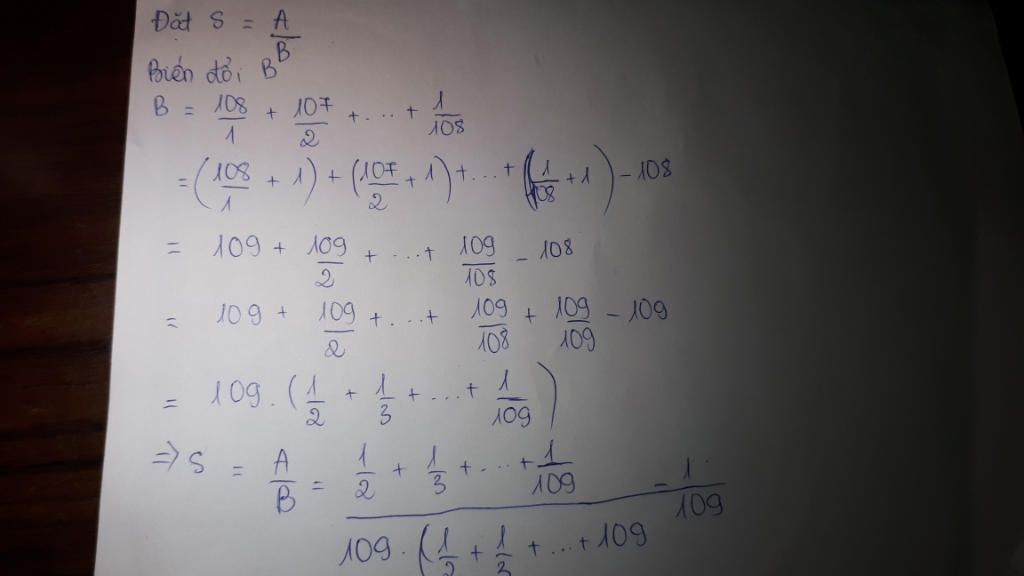 Đặt S = A/B
Biến đổi B
B = 108/1 + 107/2 + ... + 1/108
= (108/1 + 1) + (107/2 + 1) + ... + (1/108 + 1) - 108
= 109 + 109/2 + ... + 109/108 - 108
= 109 + 109/2 + ... + 109/108 + 109/109 - 109
= 109 . (1/2 + 1/3 + ... + 1/109)
=> S = A/B = 1/2 + 1/3 + ... + 1/109 / 109 . (1/2 + 1/3 + ... + 109 = 1/109